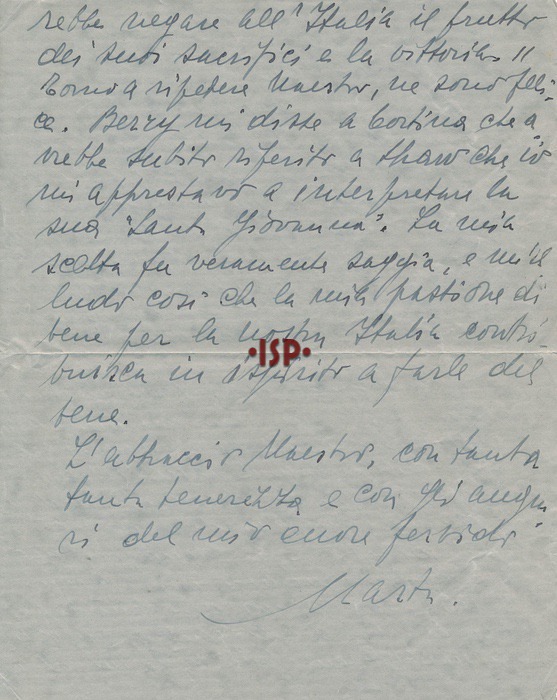 rebbe negare all'Italia il frutto
dei suoi sacrifici e la vittoria "
Torno a ripetere Maestro, ne sono feli-
ce. Berry mi disse a Cortina che a
vrebbe subito riferito a Shaw che io
mi apprestavo a interpretare la
sua "Santa Giovanna". La mia
scelta fu veramente saggia, e m'il
ludo così che la mia passione di
bene per la nostra Italia contri-
buisca in ispirito a farle del
bene.
·ISP·
L'abbraccio Maestro, con tanta
tanta tenerezza e con gli augu
ri del mio cuore fervido
Marta.